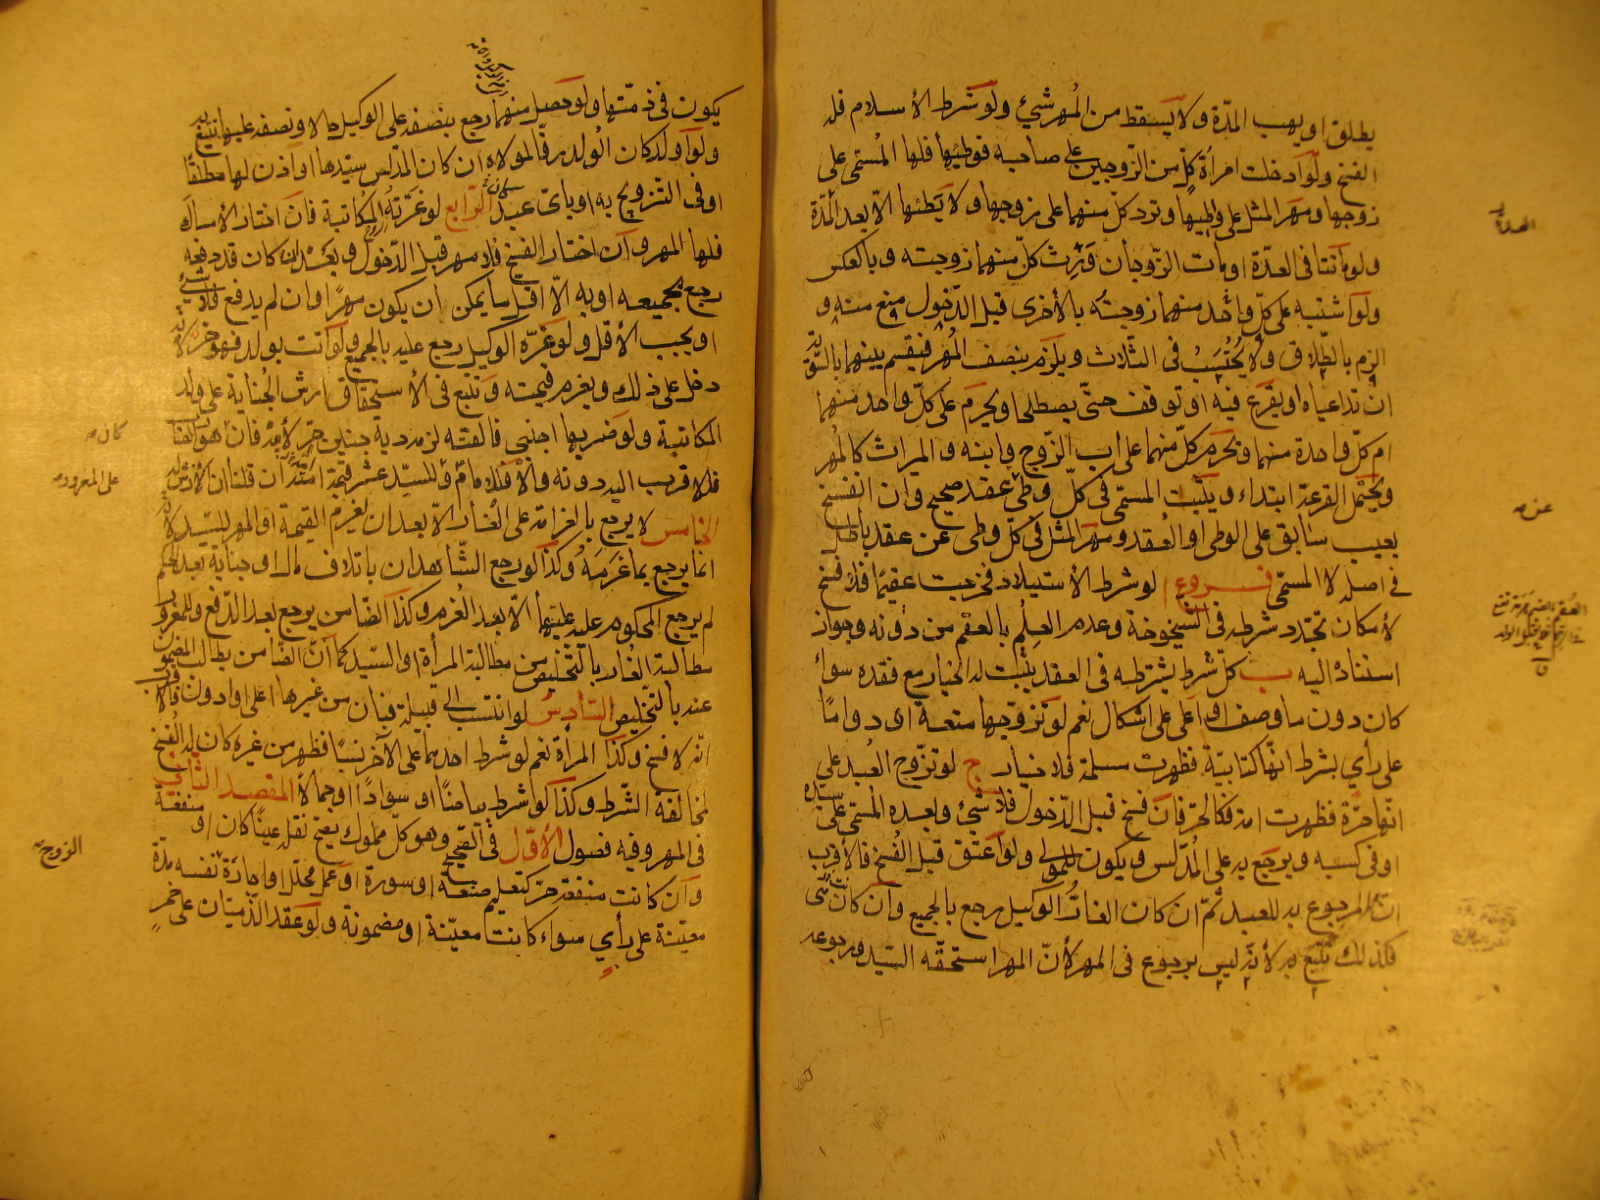 يطلق او يهب المدّة ولا يسقط من المهر شيء ولو شرط الاسلام فله
الفسخ ولو ادخلت امرأة كلّ من الزوجين على صاحبه فوطئها فلها المسمّى على
زوجها ومهر المثل على واطئها وتردّ كلّ منهما على زوجها ولا يطئها الاّ بعد العدّة
ولو ماتتا في العدّة او مات الزوجان ورث كلّ منهما زوجته وبالعكس
ولو اشتبه على كلّ واحد منهما زوجته بالأخرى قبل الدّخول منع منه و
الزم بالطّلاق ولا يحتسب في الثّلاث ويلزم بنصف المهر فيقسم بينهما بالسّويّة
ان تداعياه او يقرع فيه او توقف حتّى يصطلحا ويحرم على كلّ واحد منهما
ام كلّ واحدة منهما وتحرم كلّ منهما على اب الزّوج وابنه والميراث كالمهر
ويحتمل القرعة ابتداء ويثبت المسمّى في كلّ وطئ عقد صحيح وان انفسخ
بعيب سابق على الوطئ او العقد ومهر المثل في كلّ وطئ عن عقد باطل
في اصله لا المسمّى فروع ا لو شرط الاستيلاد فخرجت عقيما فلا فسخ
لامكان تجدّد شرطه في الشّيخوخة وعدم العلم بالعقم من دونه وجواز
استناده اليه ب كلّ شرط يشترطه في العقد يثبت له الخيار مع فقده سواء
كان دون ما وصف او اعلى على اشكال نعم لو تزوّجها متعة او دواما
على رأي بشرط انّها كتابيّة فظهرت مسلمة فلا خيار ج لو تزوّج العبد على
انّها حرّة فظهرت امة فكالحرّ فان فسخ قبل الدّخول فلا شيء وبعده المسمّى على سيّده
او في كسبه ويرجع به على المدلّس ويكون للمولى ولو اعتق قبل الفسخ فالاقرب
انّ المرجوع به للعبد ثمّ ان كان الغارّ الوكيل رجع بالجميع وان كانت هي
فكذلك تتبع به لأنّه ليس برجوع في المهر لأنّ المهر استحقّه السّيّد ورجوعه
العقم
يكون في ذمّتها ولو حصل منهما رجع بنصفه على الوكيل حالا ونصفه عليها تتبع به
ولو اولد كان الولد رقّا لمولاه ان كان المدلّس سيّدها او اذن لها مطلقا
او في التزويج به او باىّ عبد كان الرّابع لو غرّته المكاتبة فان اختار الامساك
فلها المهر وان اختار الفسخ فلا مهر قبل الدّخول وبعده ان كان قد دفعه
رجع بجميعه او به الاّ اقلّ ما يمكن ان يكون مهرا وان لم يدفع فلا شيء
او يجب الأقل ولو غرّه الوكيل رجع عليه بالجميع ولو اتت بولد فهو حرّ لانّه
دخل على ذلك ويغرم قيمته وتتبع في الاستحقاق ارش الجناية على ولد
المكاتبة ولو ضربها اجنبي فالقته لزمه دية جنين حرّ لأبيه فان كان هو الضّارب
فلاقرب اليه دونه والاّ فللامام وللسيّد عشر قيمة امّه ان قلنا ان الارش له
الخامس لا يرجع بالغرامة على الغارّ الاّ بعد ان يغرم القيمة او المهر للسيّد لأنّه
انما يرجع بما غرمه وكذا لو رجع الشّاهدان باتلاف مال او جناية بعد الحكم
لم يرجع المحكوم عليه عليهما الاّ بعد الغرم وكذا الضّامن يرجع بعد الدّفع وللمغرور
مطالبة الغارّ بالتخليص من مطالبة المرأة او السّيّد كما انّ الضّامن يطالب المضمون
عنه بالتخليص السّادس لو انتسب الى قبيلة فبان من غيرها اعلى او ادون فالاقرب
انّه لا فسخ وكذا المرأة نعم لو شرط احدهما على الآخر نسبا فظهر من غيره كان له الفسخ
لمخالفة الشّرط وكذا لو شرط بياضا او سوادا او جمالا المقصد الثّاني
في المهر وفيه فصول الأوّل في الصّحيح وهو كلّ مملوك يصحّ نقله عينا كان او منفعة
وان كانت منفعة حرّ كتعليم صنعة او سورة او عمل محلّل او اجارة نفسه مدّة
معيّنة على رأي سواء كانت معيّنة او مضمونة ولو عقد الذّميّان على خمر
كان
على المغرور
الزوج